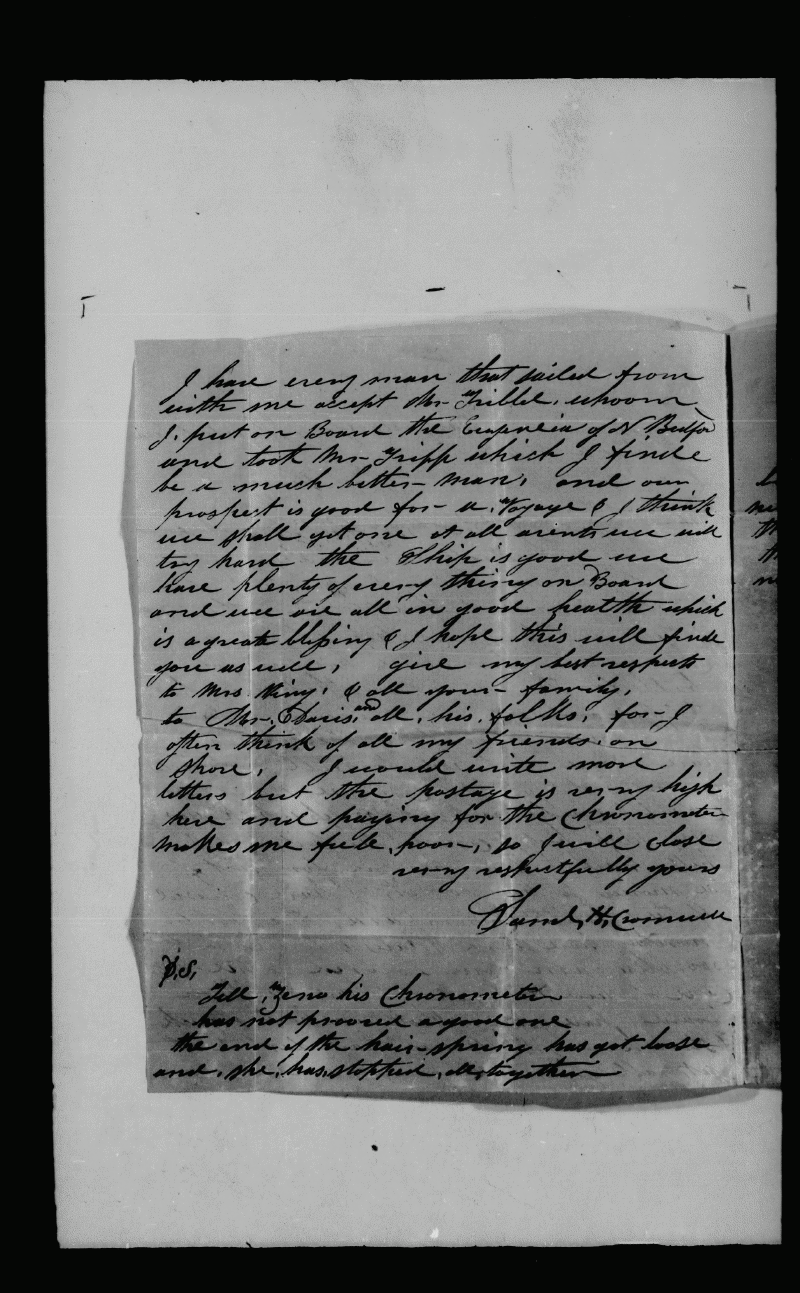 I have every man that sailed from
with me accept Mr Tribble, whoom
I, put on Board the Cugrelia of N Bedfor
and took Mr Tripp which I finde
be a much better man, and our
prospect is good for a, Voyage & I think
we shall get one at all avents we will
try hard the Ship is good we
have plenty of every thing on Board
and we are all in good health which
is a greate blessing & I hope this will finde
you as well, give my best respects
to Mrs King, & all your family,
to Mr, Davis, and all, his folks, for I
often think of all my friends on
Shore, I would write more
letters but the postage is verry high
here and paying for the Chronometer
makes me feele, poor, so I will close
verry respectfully yours
Saml, H, Cromwell
P,S,
Tell, Zeno his Chronometer
has not prooved a good one
the end of the hair-spring has got loose
and, she, has, stopped, all, together